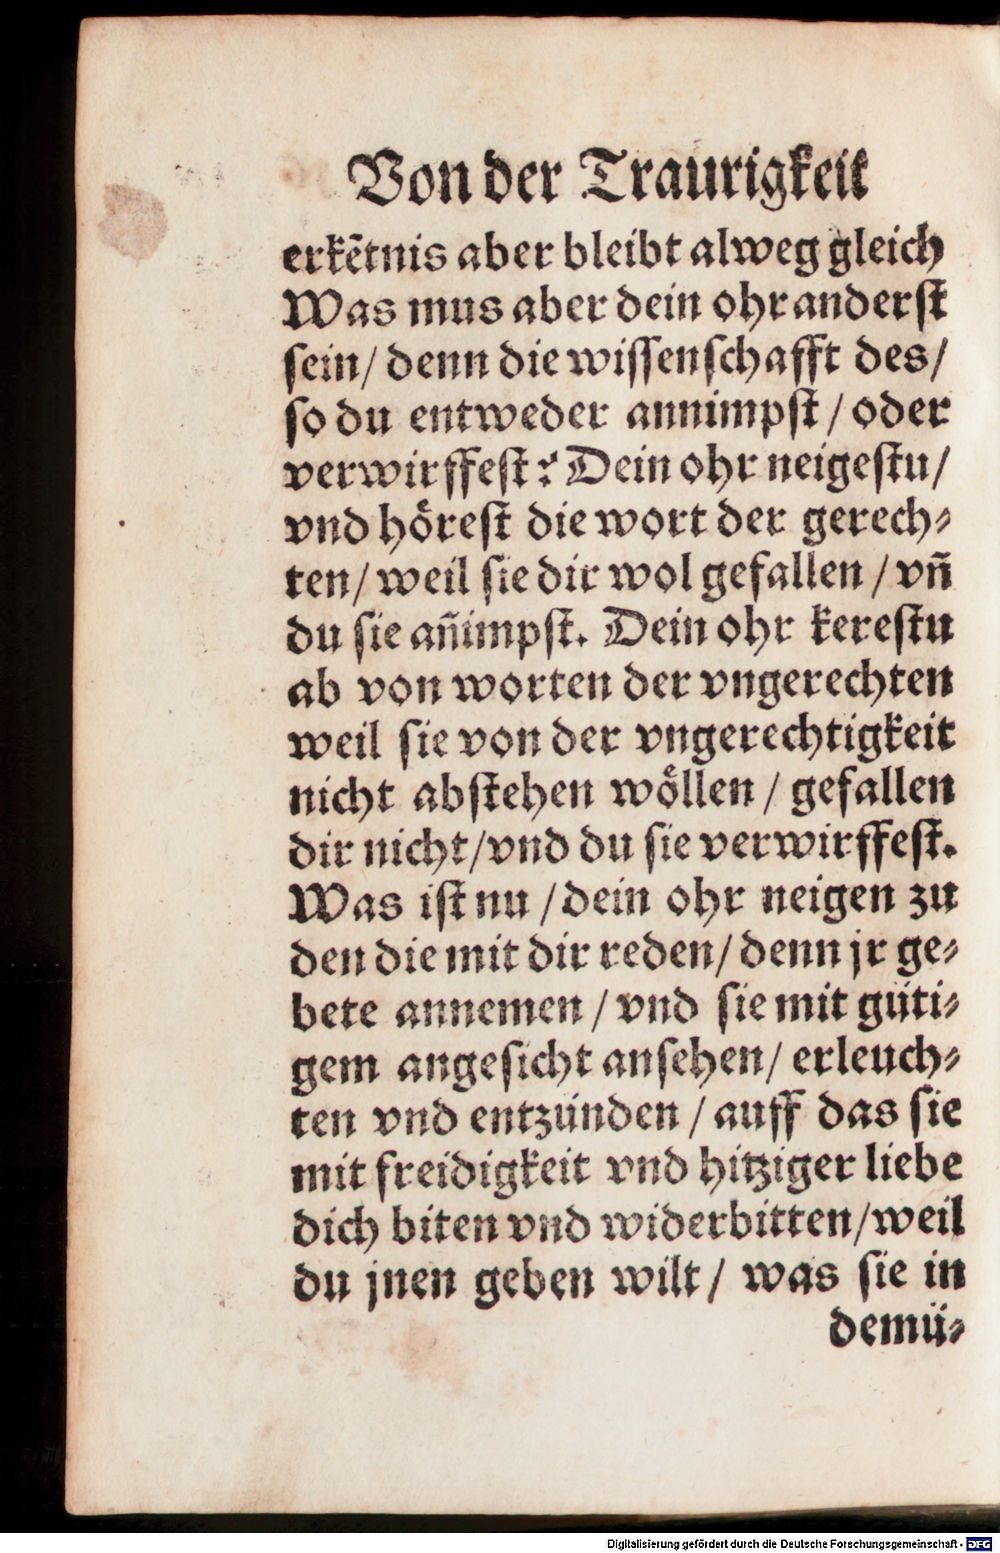 Von der Traurigkeit
erkẽtnis aber bleibt alweg gleich
Was mus aber dein ohr anderst
sein/ denn die wissenschafft des/
so du entweder annimpst / oder
verwirffest? Dein ohr neigestu/
vnd hoͤrest die wort der gerech⸗
ten/ weil sie dir wol gefallen / vñ
du sie añimpst. Dein ohr kerestu
ab von worten der vngerechten
weil sie von der vngerechtigkeit
nicht abstehen woͤllen / gefallen
dir nicht/vnd du sie verwirffest.
Was ist nu / dein ohr neigen zu
den die mit dir reden/ denn jr ge⸗
bete annemen / vnd sie mit güti⸗
gem angesicht ansehen/ erleuch⸗
ten vnd entzünden / auff das sie
mit freidigkeit vnd hitziger liebe
dich biten vnd widerbitten/weil
du jnen geben wilt/ was sie in
demü⸗
Digitalisierung gefördert durch die Deutsche Forschungsgemeinschaft - DFG